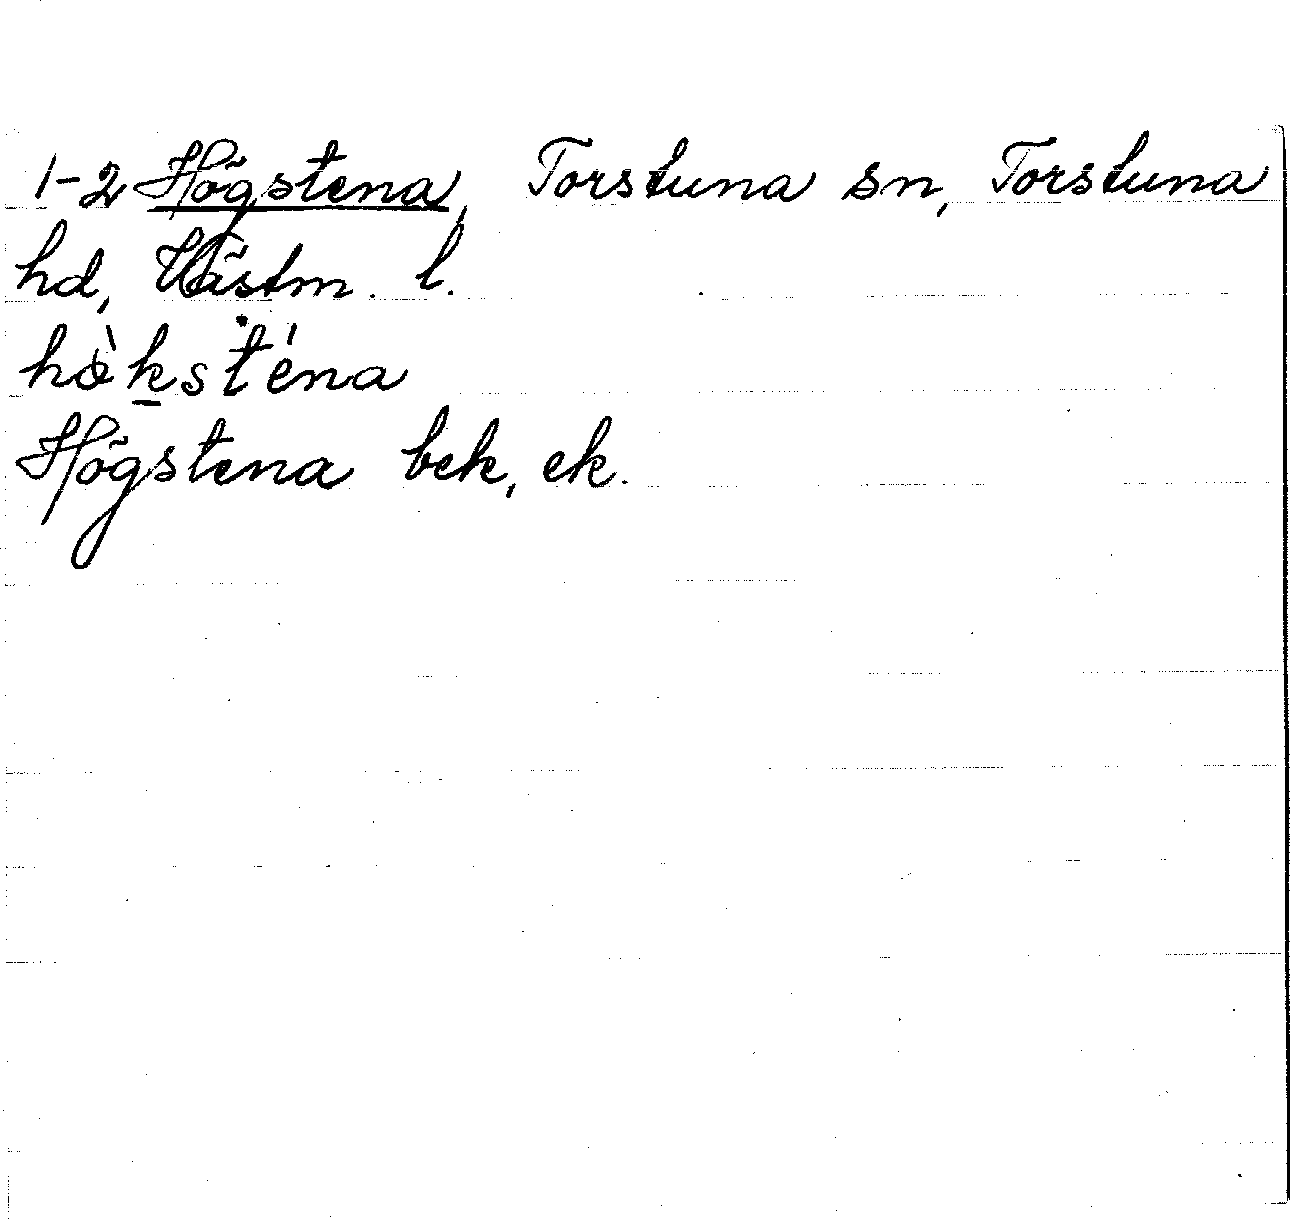 1-2 Högstena, Torstuna sn, Torstuna
hd, Västm. l.
hö̀ksténa
Högstena bek, ek.